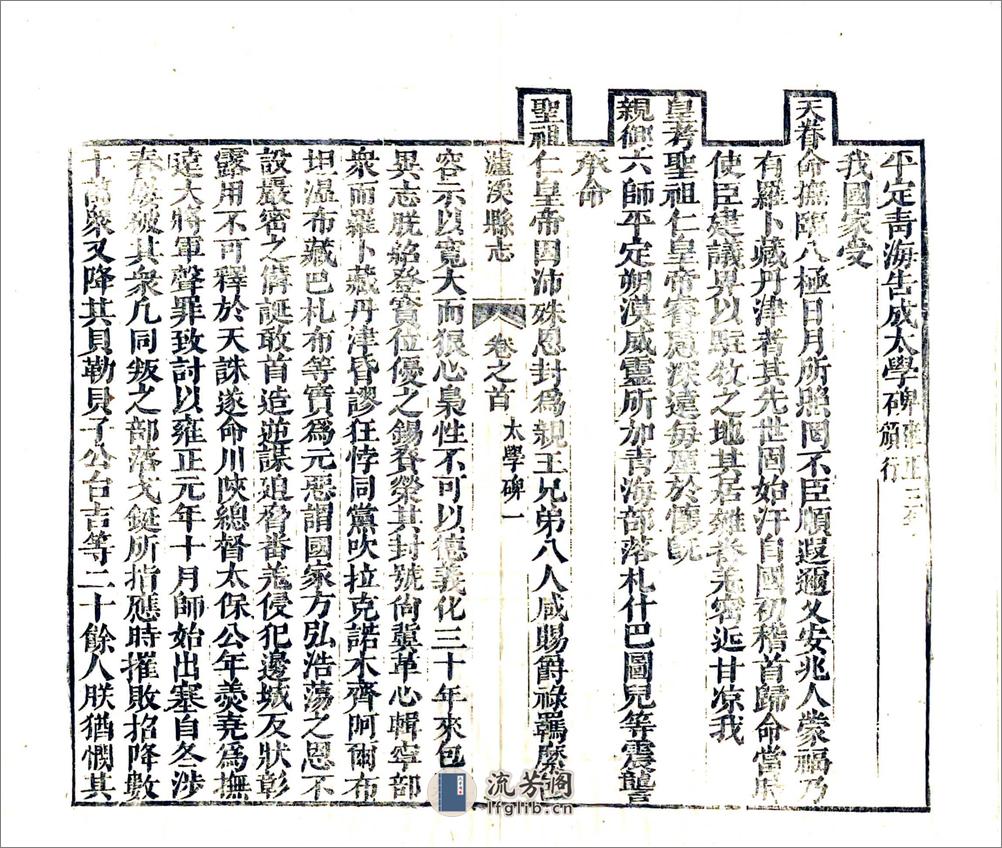 平定青海告成太學碑 雍正三年頒行
我國家受
天眷命撫臨八極日月所照罔不臣順遐邇乂安兆人蒙福乃
有羅卜藏丹津者其先世固始汗自國初稽首歸命當時
使臣建議畀以駐牧之地其居雜番羌密近甘凉我
皇考聖祖仁皇帝睿慮深遠每厪於懷既
親御六師平定朔漠威靈所加青海部落札什巴圖兒等震讋
承命
聖祖仁皇帝因沛殊恩封爲親王兄弟八人咸賜爵祿羈縻
瀘溪縣志 卷之首 太學碑 一
容示以寬大而狼心梟性不可以德義化三十年來包
異志朕紹登寶位優之錫賚榮其封號尙冀革心輯寧部
衆而羅卜藏丹津昏謬狂悖同黨吹拉克諾木齊阿爾布
坦溫布藏巴札布等實爲元惡謂國家方弘浩蕩之恩不
設嚴密之備誕敢首造逆謀迫脅番羌侵犯邊城反狀彰
露用不可釋於天誅遂命川陝總督太保公年羹堯爲撫
遠大將軍聲罪致討以雍正元年十月師始出塞自冬涉
春屢破其衆凡同叛之部落戈鋋所指應時摧敗招降數
十萬衆又降其貝勒貝子公台吉等二十餘人朕猶憫其
流芳閣
lfglib.cn